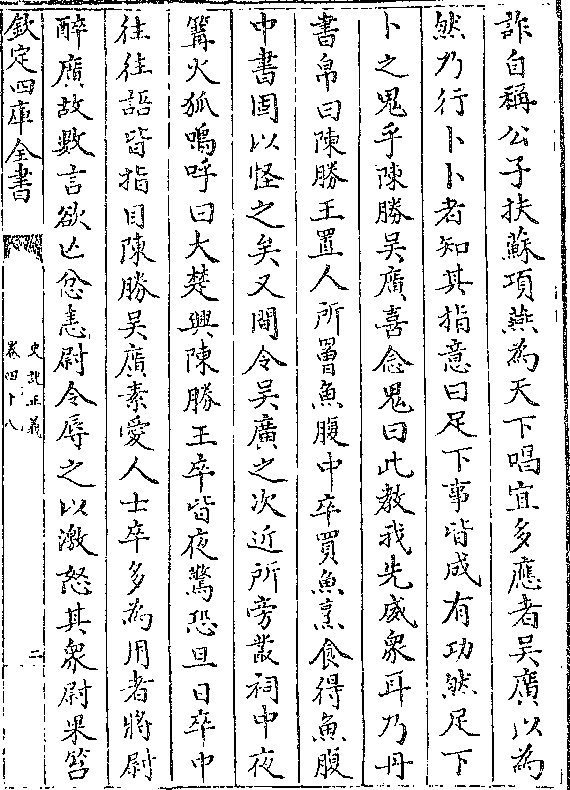 詐自稱公子扶蘇項燕為天下唱宜多應者吳廣以為
然乃行卜卜者知其指意曰足下事皆成有功然足下
卜之鬼乎陳勝吳廣喜念鬼曰此教我先威衆耳乃丹
書帛曰陳勝王置人所罾魚腹中卒買魚烹食得魚腹
中書固以怪之矣又間令吳廣之次近所旁叢祠中夜
篝火狐鳴呼曰大楚興陳勝王卒皆夜驚恐旦日卒中
往往語皆指目陳勝吳廣素愛人士卒多為用者將尉
醉廣故數言欲亡忿恚尉令辱之以激怒其衆尉果笞
欽定四庫全書
史記正義
卷四十八
二